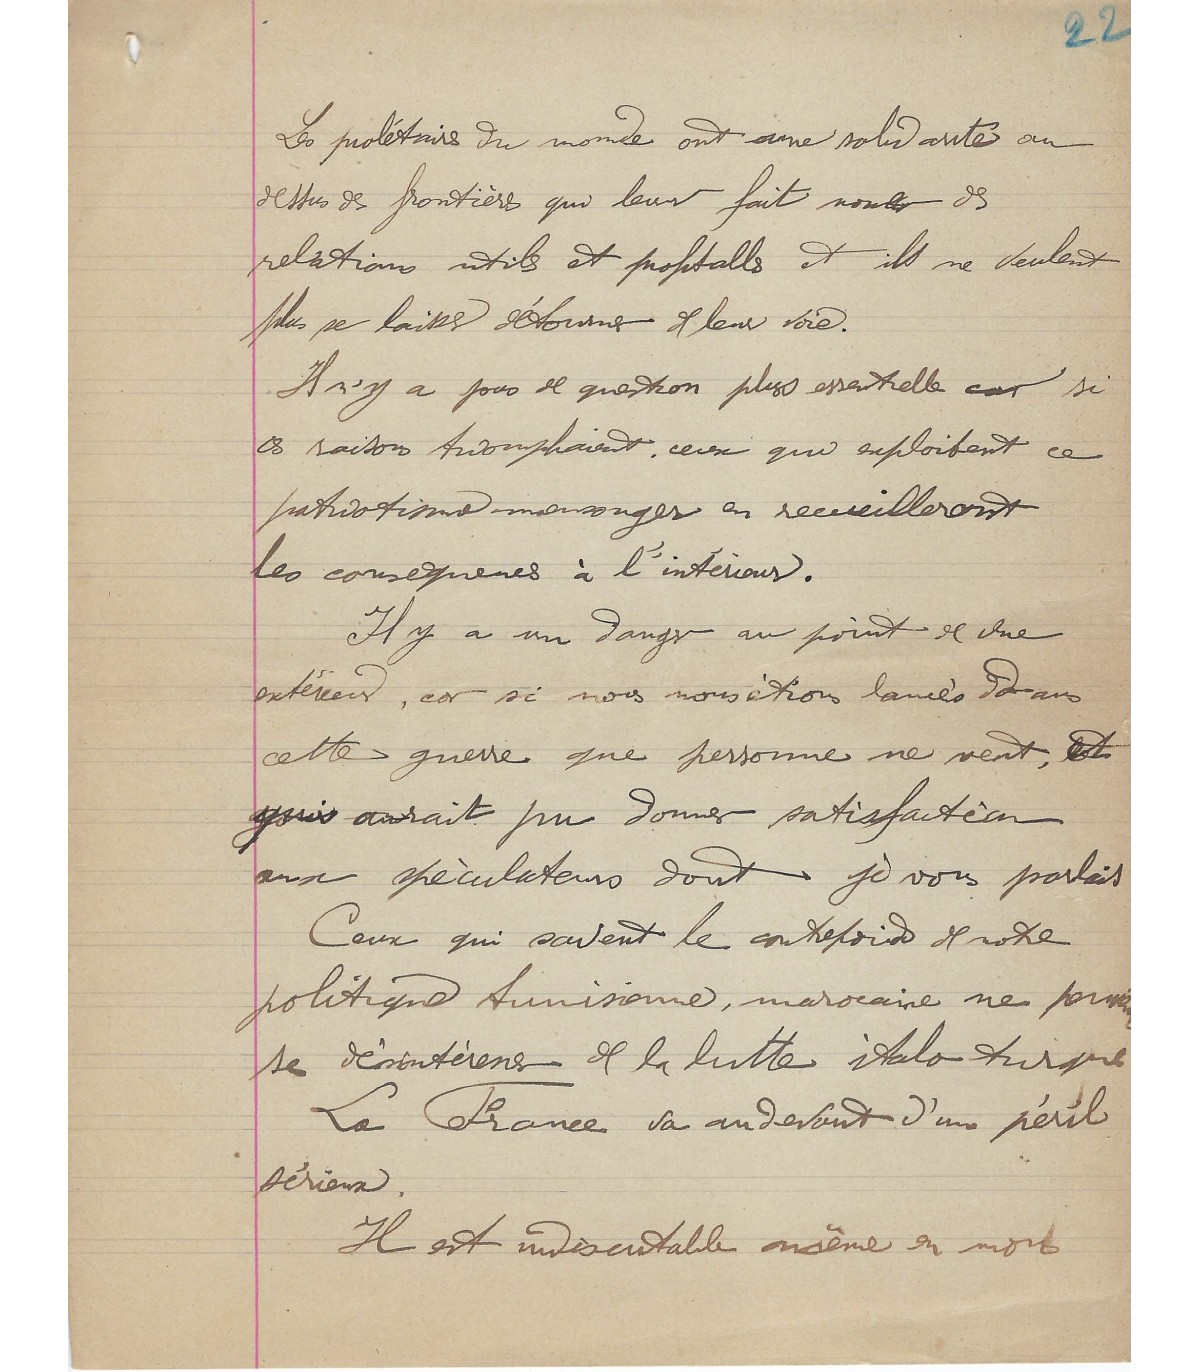 22
Les prolétaires du monde ont une solidarité au
dessus des frontières qui leur fait nouer des
relations utiles et et ils ne veulent
plus se laisser détourner de leur voie.
Il n'y a pas de question plus essentielle car si
ces raisons triomphaient, ceux qui exploitent ce
patriotisme mensonger en recueilleront
les conséquences à l'intérieur.
Il y a un danger au point de vue
extérieur, car si nous nous étions lancés dans
cette guerre que personne ne veut, et
qui aurait pu donner satisfaction
aux spéculateurs dont je vous parlais
Ceux qui savent le contrepoids de notre
politique tunisienne, marocaine ne
se désintéresser de la lutte italo turque
La France va au devant d'un péril
sérieux.
Il est indiscutable même en